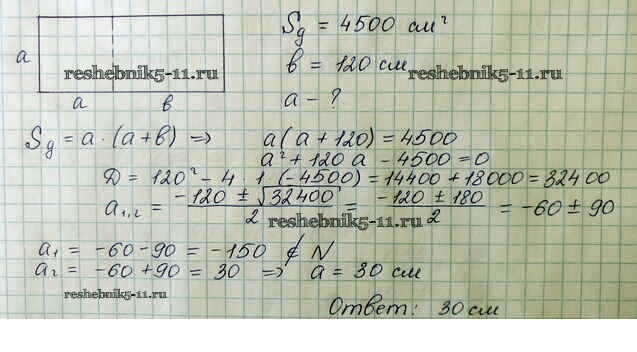 a
a в
Sд = 4500 см²
в = 120 см
a - ?
reshebnik5-11.ru
reshebnik5-11.ru
Sд = a · (a + в) ⇒ a(a + 120) = 4500
a² + 120a - 4500 = 0
D = 120² - 4 · 1 · (-4500) = 14400 + 18000 = 32400
a₁,₂ = (-120 ± √32400)/2 = (-120 ± 180)/2 = -60 ± 90
reshebnik5-11.ru
a₁ = -60 - 90 = -150 ∉ N
a₂ = -60 + 90 = 30 ⇒ a = 30 см
reshebnik5-11.ru
Ответ: 30 см